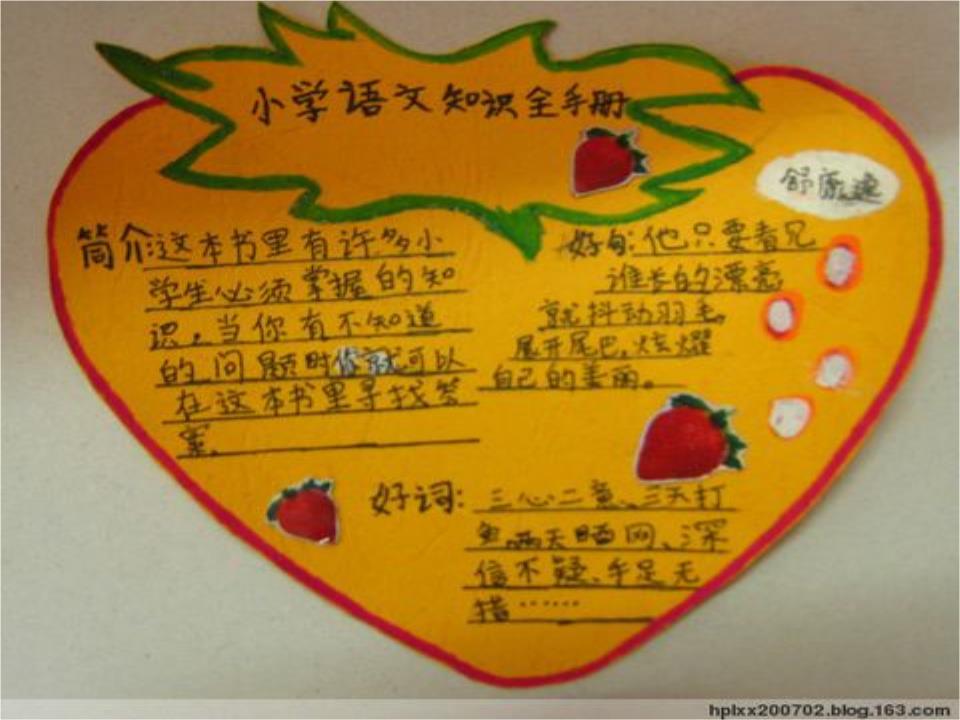 小学语文知识全手册
简介:这本书里有许多小
学生必须掌握的知
识,当你有不知道
的问题时你就可以
在这本书里寻找答
案。
好句:他只要看见
谁长的漂亮
就抖动羽毛,
展开尾巴,炫耀
自己的美丽。
好词:三心二意、三天打
鱼两天晒网、深
信不疑、手足无
措……
hplxx200702.blog.163.com